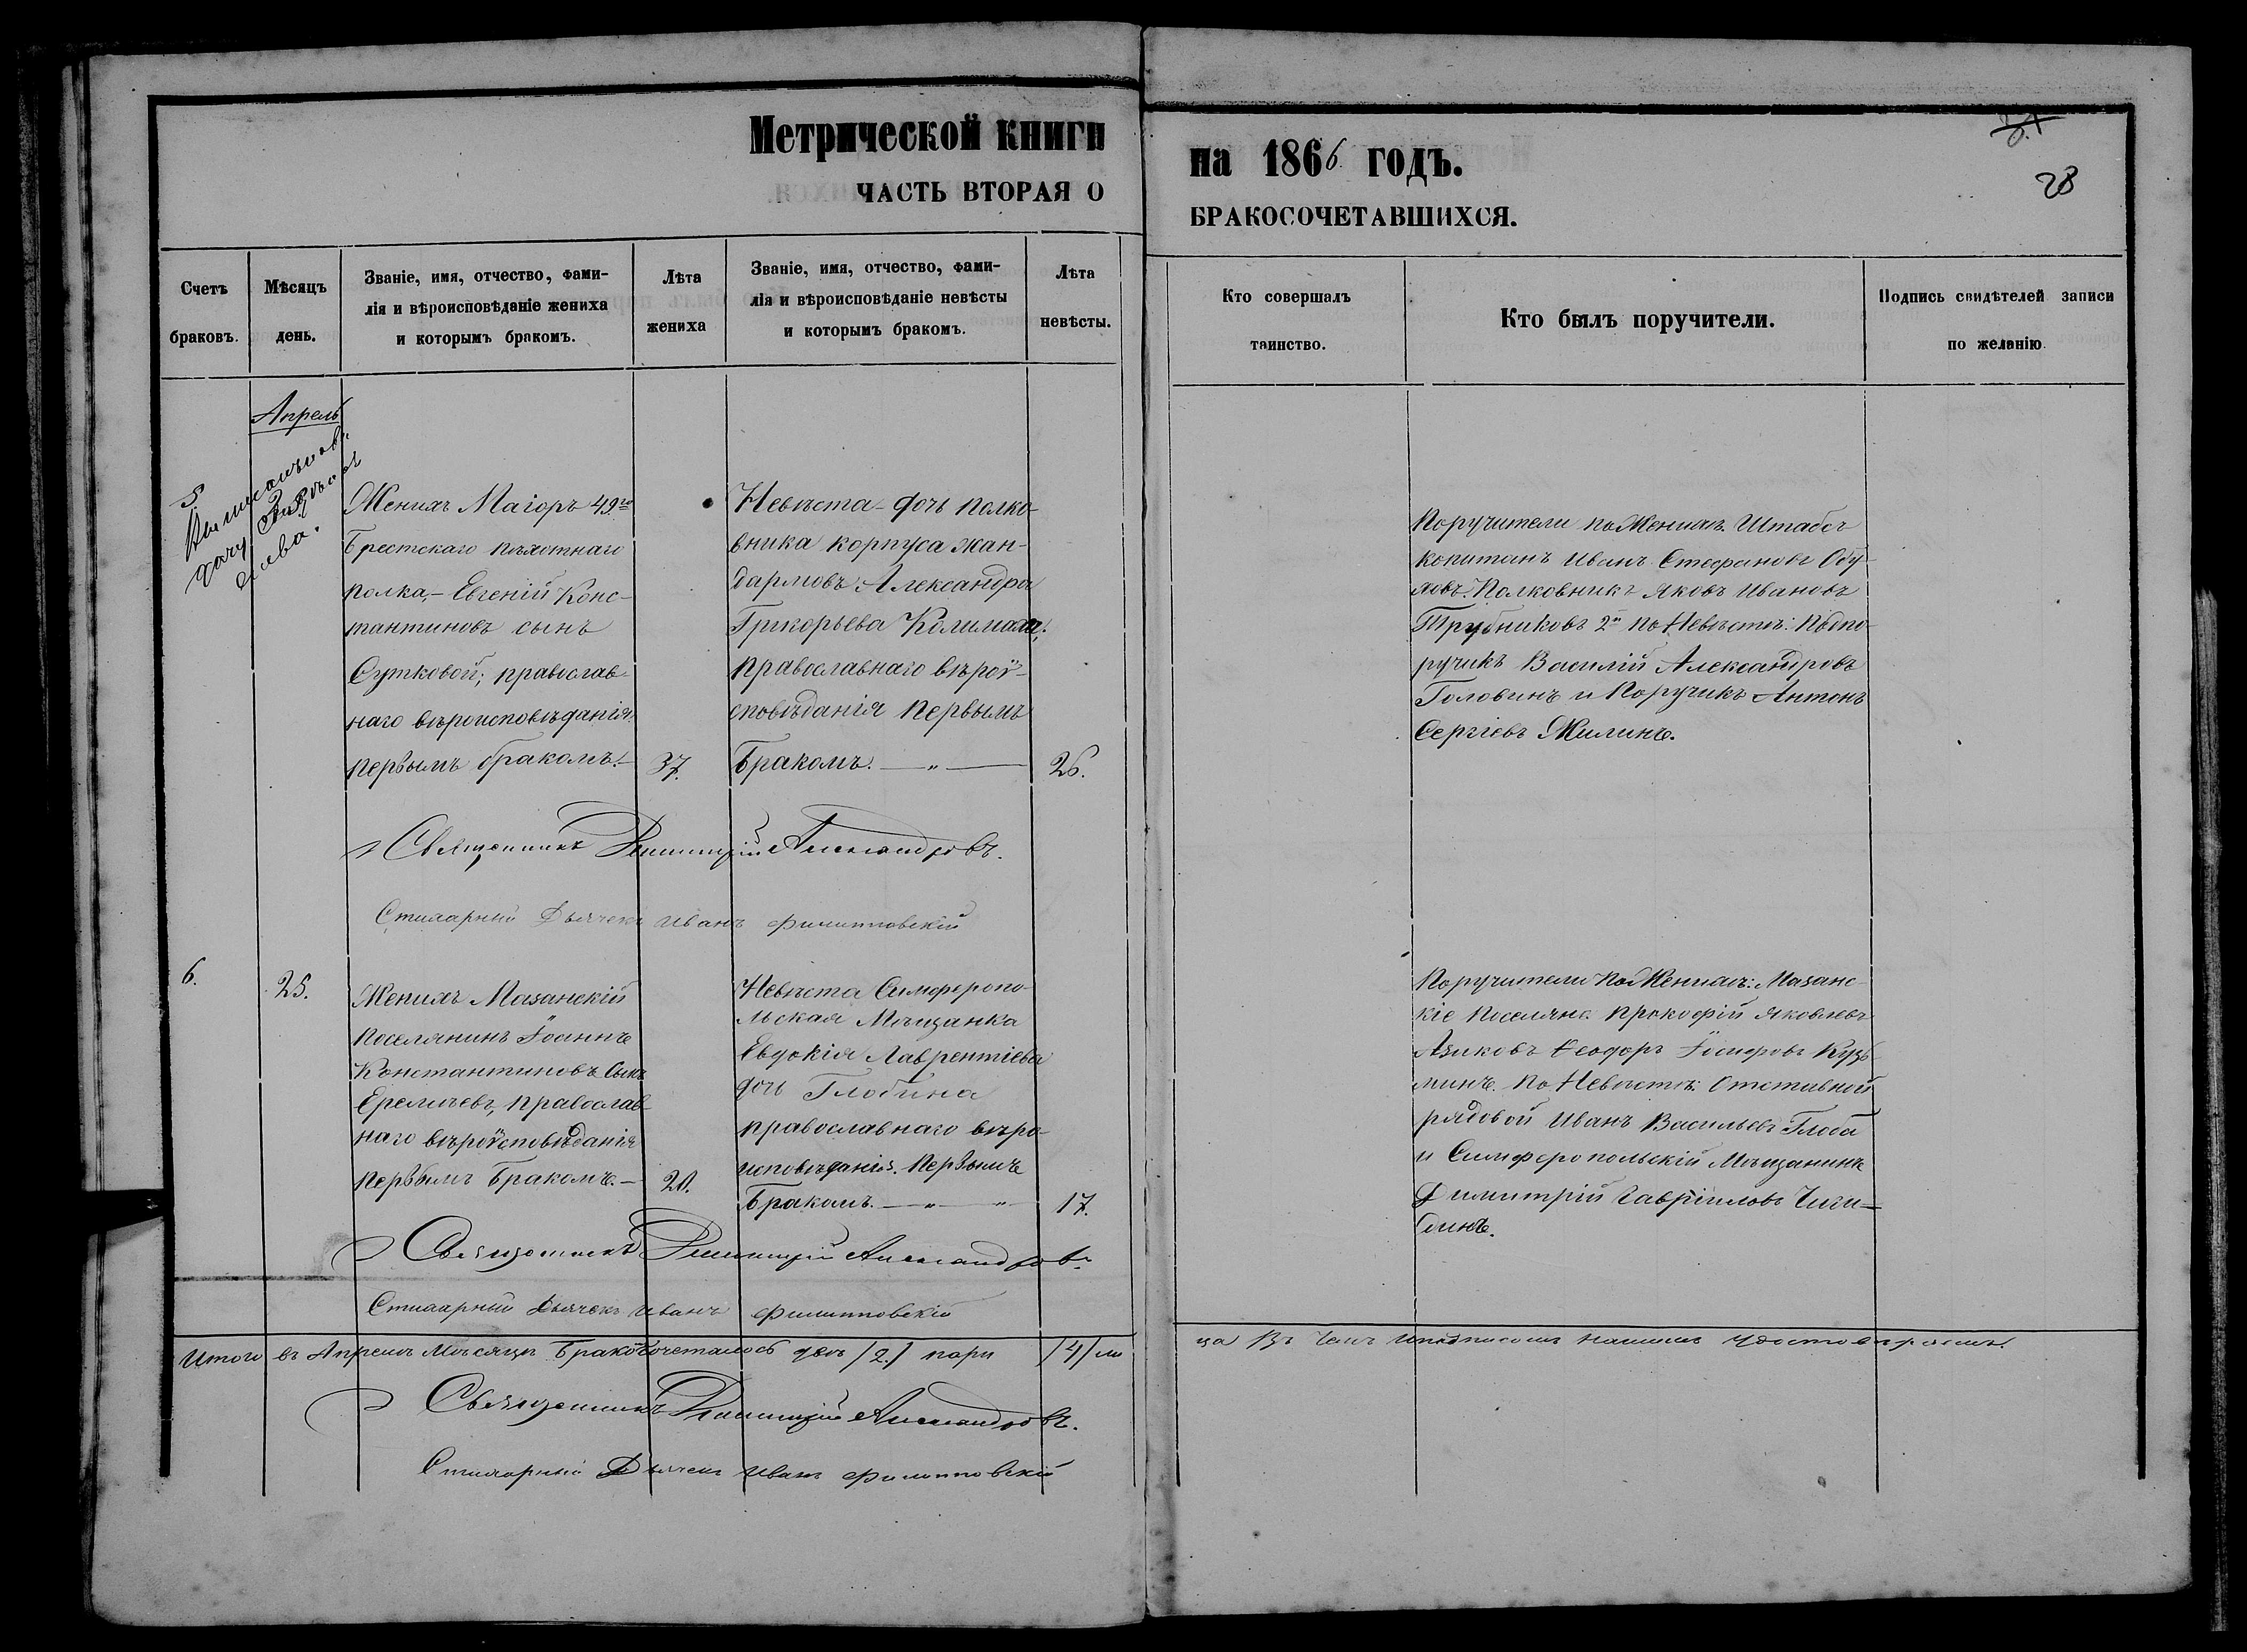 Метрической книги
ЧАСТЬ ВТОРАЯ О
на 1866 годъ.
БРАКОСОЧЕТАВШИХСЯ.
28
Счетъ
браковъ.
Мѣсяцъ
день.
Званіе, имя, отчество, фами-
лія и вѣроисповѣданіе жениха
и которымъ бракомъ.
Лѣта
жениха
Званіе, имя, отчество, фами-
лія и вѣроисповѣданіе невѣсты
и которымъ бракомъ.
Лѣта
невѣсты.
Кто совершалъ
таинство.
Кто былъ поручители.
Подпись свидѣтелей записи
по желанію
Апрель
5.
Женихъ Маіоръ 49го
Брестскаго пѣхотнаго
полка,- Евгеній Конс-
тантиновъ сынъ
Сутковой; православ-
наго вѣроисповѣданія.
первымъ бракомъ.-
37.
Невѣста - дочь полко-
вника корпуса жан-
дармовъ Александра
Григорьева
православнаго вѣрои-
сповѣданія первымъ
Бракомъ. — „ —
26.
Поручители по Женихѣ. Штабсъ
капитанъ Иванъ Стефановъ Обу-
ховъ. Полковникъ Яковъ Ивановъ
Трубниковъ 2й по Невѣстѣ: Подпо-
ручикъ Василій Александровъ
Головинъ и Поручикъ Антонъ
Сергіевъ Жилинъ.
Священникъ Димитрій Александровъ.
Стихарный Дьячекъ Иванъ Филипповскій
6.
25.
Женихъ Мазанскій
Поселянинъ Іоаннъ
Константиновъ Сынъ
Еремичевъ, Православ-
наго вѣроисповѣданія
первымъ Бракомъ.-
20.
Невѣста Симферопо-
льская Мѣщанка
Евдокія Лаврентіева
дочь Глобина
православнаго вѣро-
исповѣданія. Первымъ
Бракомъ. — „ — „
17.
Поручители по Женихѣ: Мазанс-
кіе Поселяне Прокофій Яковлевъ
Азиковъ Ѳеодоръ Іосифовъ Кузь-
минъ. По Невѣстѣ: Отставной
рядовой Иванъ Васильевъ Глоба
и Симферопольскій Мѣщанинъ
Димитрій Гавріиловъ
Священникъ Димитрій Александровъ.
Стихарный Дьячекъ Иванъ Филипповскій
Итого въ Апрелѣ Мѣсяцѣ Бракосочеталось двѣ /2./ пары /4/ ли
ца Въ чемъ и подписомъ нашимъ удостовѣряемъ.
Священникъ Димитрій Александровъ.
Стихарный Дьячекъ Иванъ Филипповскій